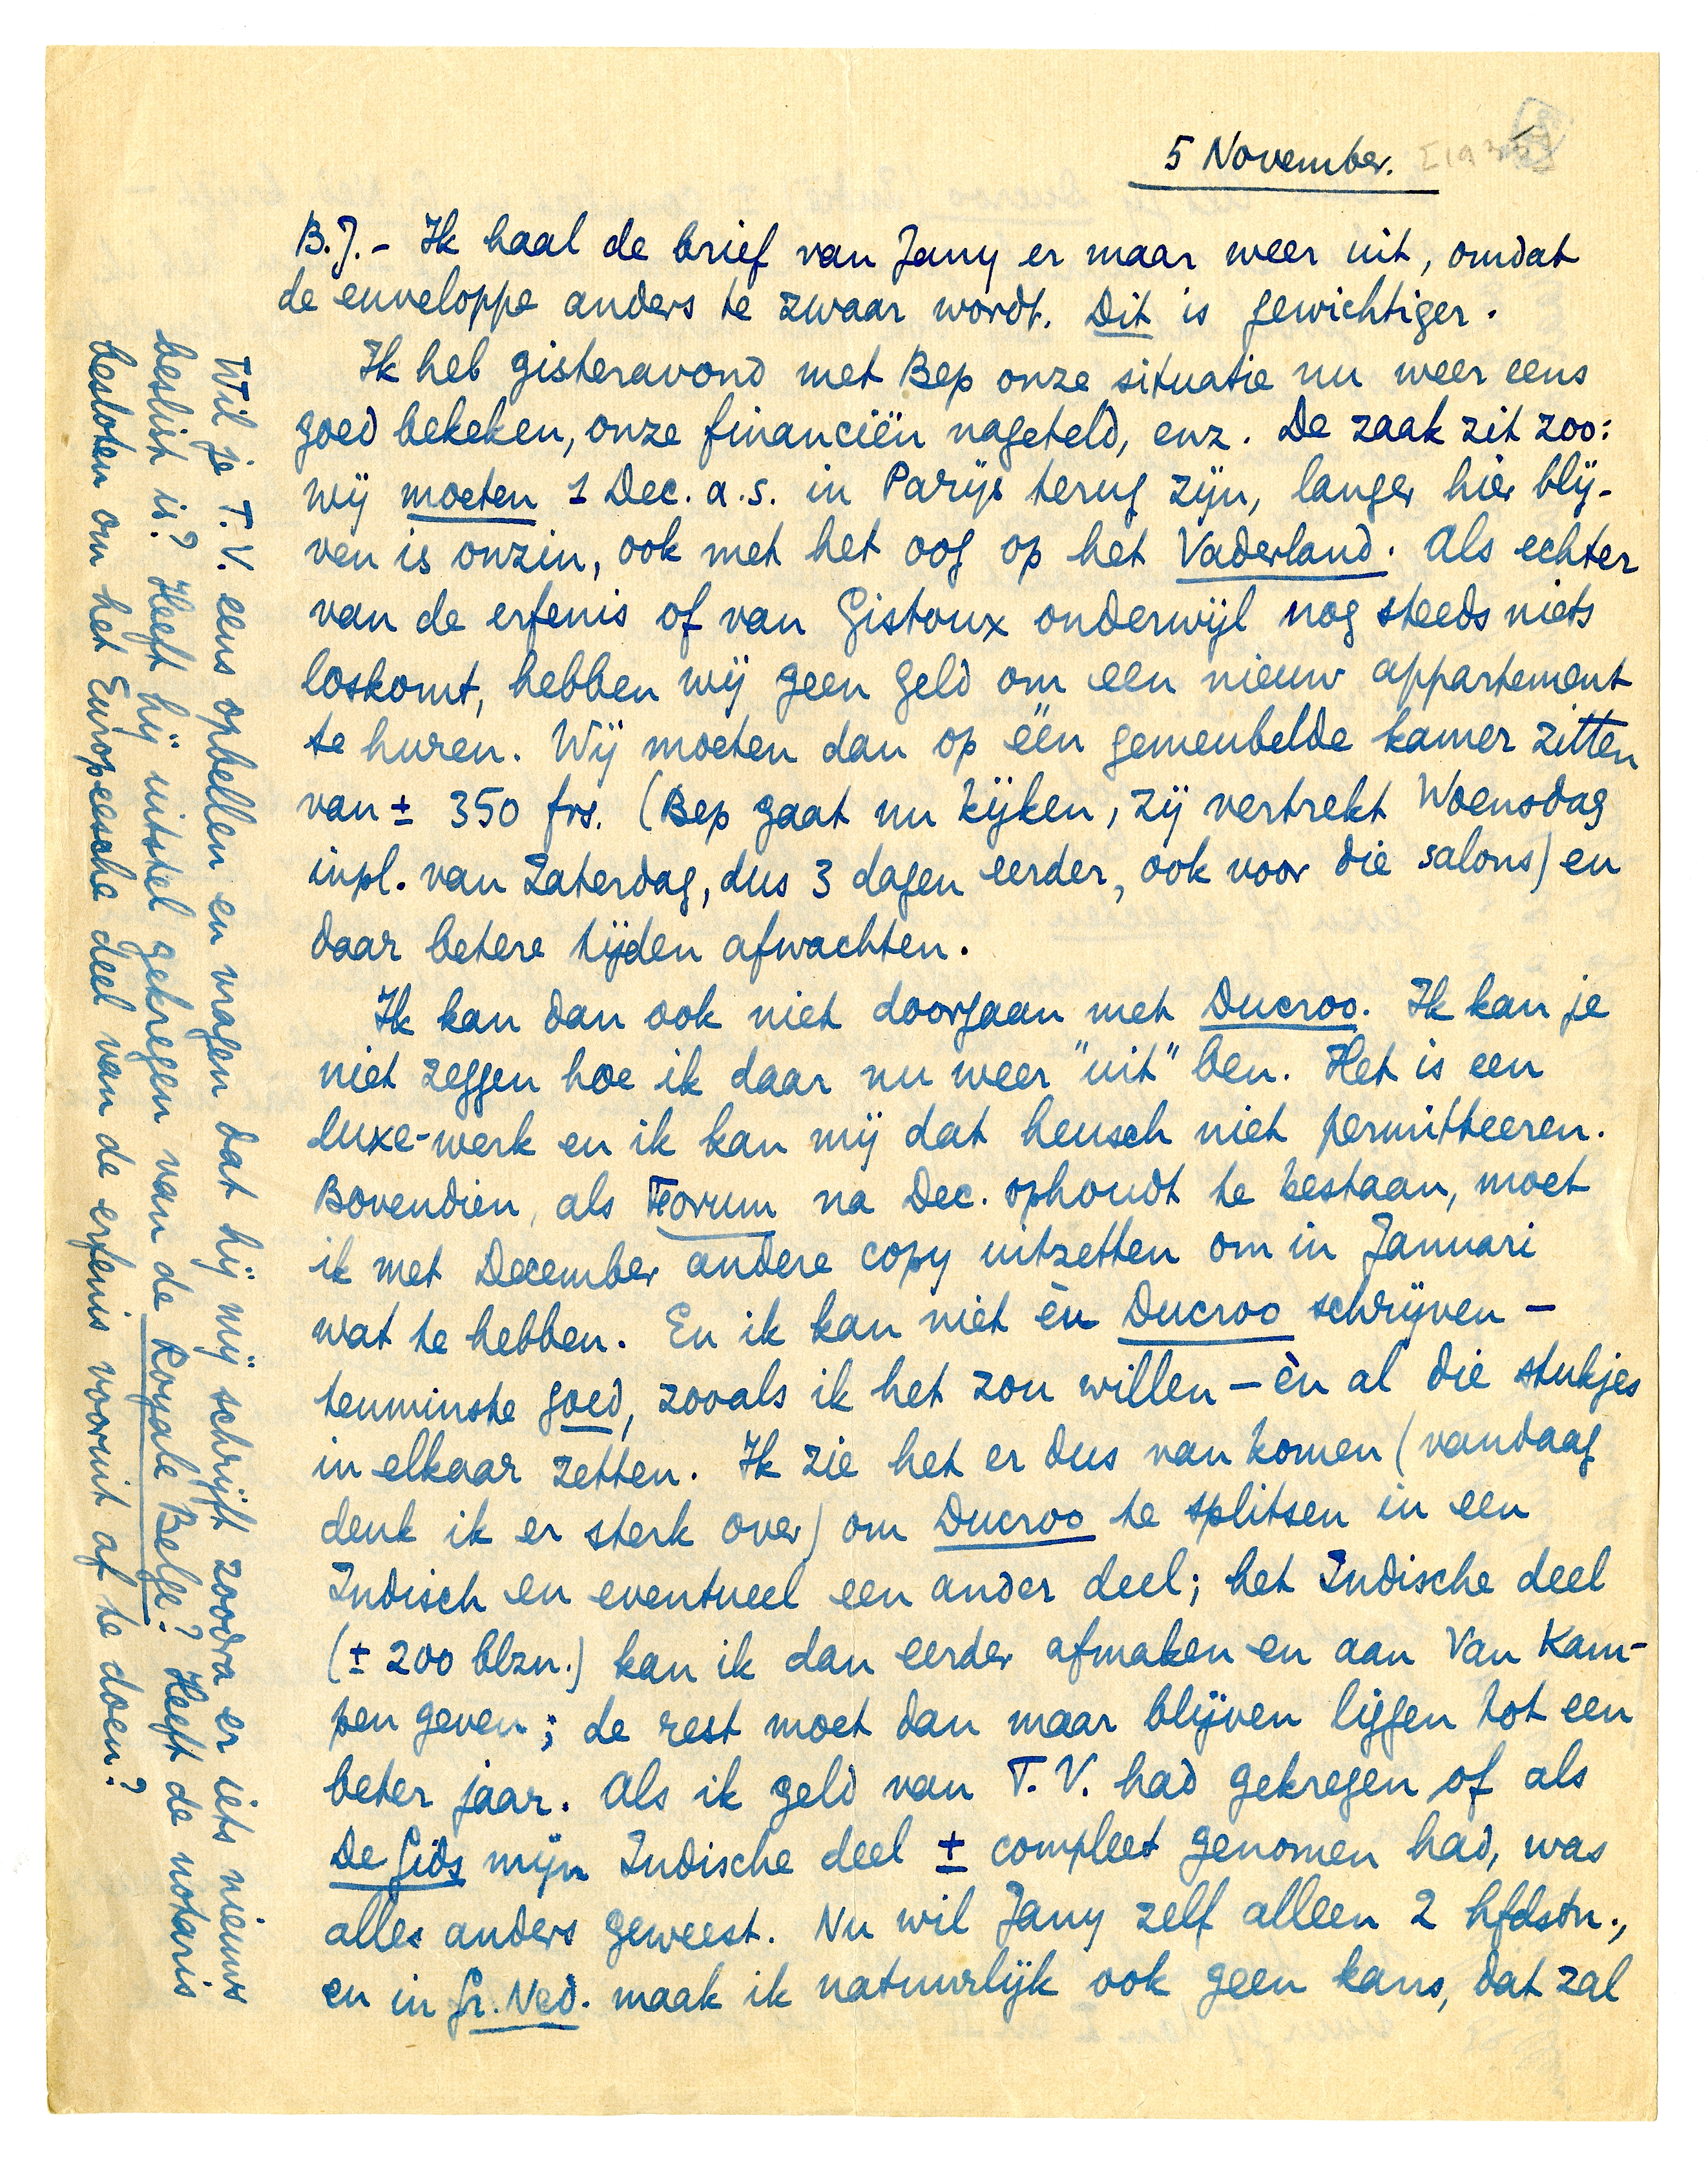 5 November.
B.J. - Ik haal de brief van Jany er maar weer uit, omdat
de enveloppe anders te zwaar wordt. Dit is gewichtiger.
Ik heb gisteravond met Bep onze situatie nu weer eens
goed bekeken, onze financiën nageteld, enz. De zaak zit zoo:
wij moeten 1 Dec. a.s. in Parijs terug zijn, langer hier blij-
ven is onzin, ook met het oog op het Vaderland. Als echter
van de erfenis of van Gistoux onderwijl nog steeds niets
loskomt, hebben wij geen geld om een nieuw appartement
te huren. Wij moeten dan op één gemeubelde kamer zitten
van ± 350 frs. (Bep gaat nu kijken, zij vertrekt Woensdag
inpl. van Zaterdag, dus 3 dagen eerder, ook voor die salons) en
daar betere tijden afwachten.
Ik kan dan ook niet doorgaan met Ducroo. Ik kan je
niet zeggen hoe ik daar nu weer "uit" ben. Het is een
luxe-werk en ik kan mij dat heusch niet permitteeren.
Bovendien, als Forum na Dec. ophoudt te bestaan, moet
ik met December andere copy uitzetten om in Januari
wat te hebben. En ik kan niet èn Ducroo schrijven -
tenminste goed, zooals ik het zou willen - èn al die stukjes
in elkaar zetten. Ik zie het er dus van komen (vandaag
denk ik er sterk over) om Ducroo te splitsen in een
Indisch en eventueel een ander deel; het Indische deel
(± 200 blzn.) kan ik dan eerder afmaken en aan Van Kam-
pen geven; de rest moet dan maar blijven liggen tot een
beter jaar. Als ik geld van T.V. had gekregen of als
De Gids mijn Indische deel ± compleet genomen had, was
alles anders geweest. Nu wil Jany zelf alleen 2 hfdstn.,
en in Gr. Ned. maak ik natuurlijk ook geen kans, dat zal
Wil je T.V. eens opbellen en vragen dat hij mij schrijft zoodra er iets nieuws
beslist is? Heeft hij uitstel gekregen van de Royale Belge? Heeft de notaris
besloten om het Europeesche deel van de erfenis vooruit af te doen?